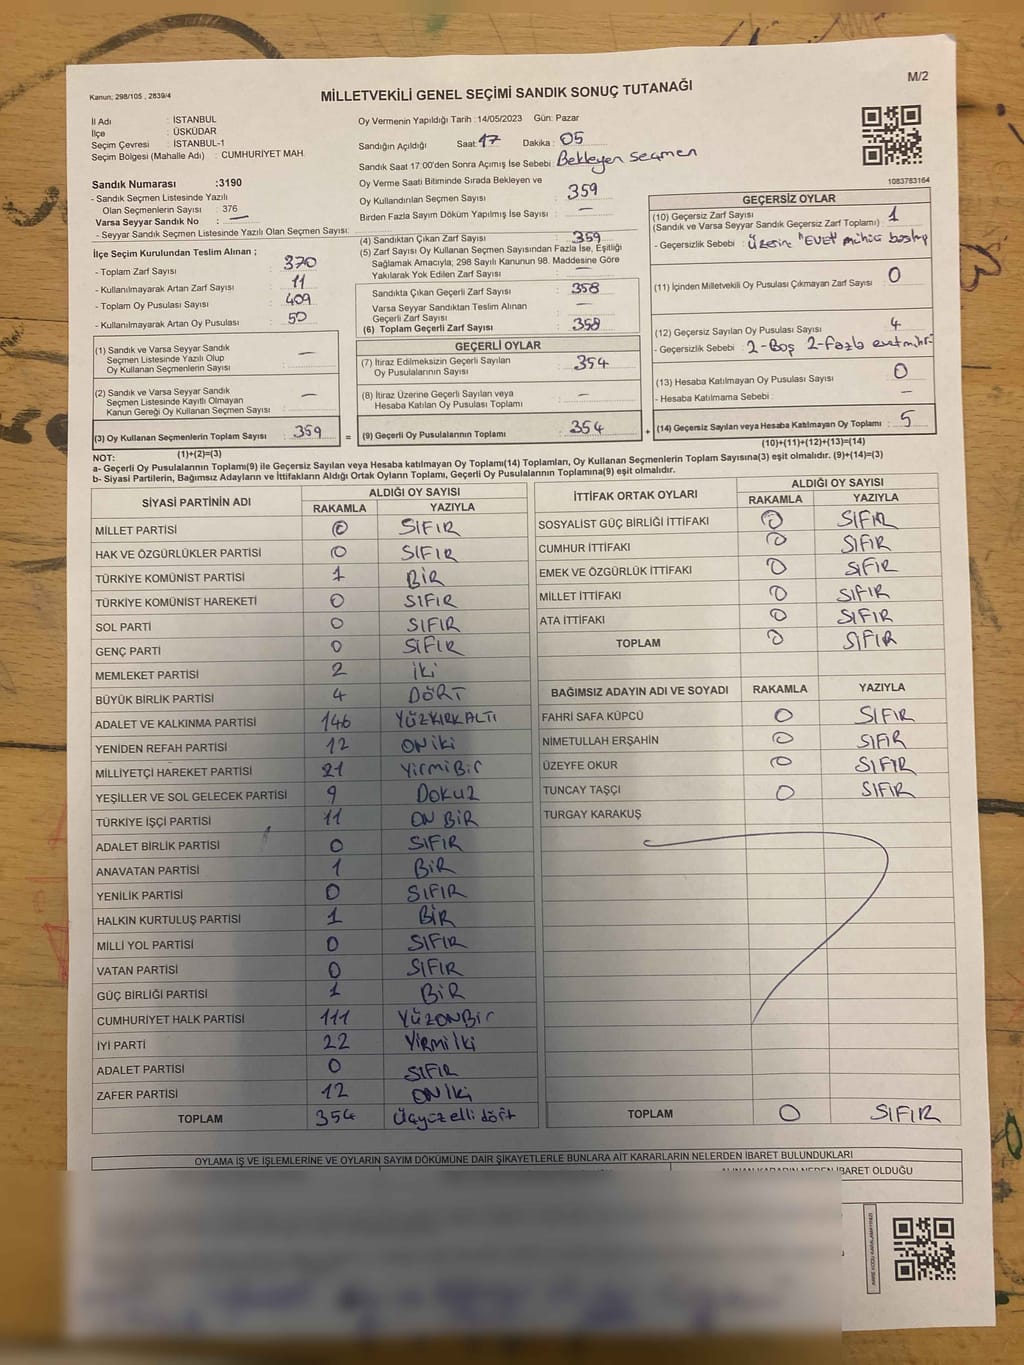 Kanun; 298/105 , 2839/4
MİLLETVEKİLİ GENEL SEÇİMİ SANDIK SONUÇ TUTANAĞI
M/2
İl Adı : İSTANBUL
İlçe : ÜSKÜDAR
Seçim Çevresi : İSTANBUL-1
Seçim Bölgesi (Mahalle Adı) : CUMHURİYET MAH.
Sandık Numarası :3190
- Sandık Seçmen Listesinde Yazılı
Olan Seçmenlerin Sayısı : 376
Varsa Seyyar Sandık No : —
- Seyyar Sandık Seçmen Listesinde Yazılı Olan Seçmen Sayısı:
İlçe Seçim Kurulundan Teslim Alınan ;
- Toplam Zarf Sayısı : 370
- Kullanılmayarak Artan Zarf Sayısı : 11
- Toplam Oy Pusulası Sayısı : 409
- Kullanılmayarak Artan Oy Pusulası : 50
(1) Sandık ve Varsa Seyyar Sandık
Seçmen Listesinde Yazılı Olup
Oy Kullanan Seçmenlerin Sayısı : —
(2) Sandık ve Varsa Seyyar Sandık
Seçmen Listesinde Kayıtlı Olmayan
Kanun Gereği Oy Kullanan Seçmen Sayısı : —
(3) Oy Kullanan Seçmenlerin Toplam Sayısı : 359
(1)+(2)=(3)
Oy Vermenin Yapıldığı Tarih : 14/05/2023 Gün: Pazar
Sandığın Açıldığı Saat : 17 Dakika : 05
Sandık Saat 17:00'den Sonra Açımış İse Sebebi : Bekleyen seçmen
Oy Verme Saati Bitiminde Sırada Bekleyen ve
Oy Kullandırılan Seçmen Sayısı : 359
Birden Fazla Sayım Döküm Yapılmış İse Sayısı : —
(4) Sandıktan Çıkan Zarf Sayısı : 359
(5) Zarf Sayısı Oy Kullanan Seçmen Sayısından Fazla İse, Eşitliği
Sağlamak Amacıyla; 298 Sayılı Kanunun 98. Maddesine Göre
Yakılarak Yok Edilen Zarf Sayısı : —
Sandıkta Çıkan Geçerli Zarf Sayısı : 358
Varsa Seyyar Sandıktan Teslim Alınan
Geçerli Zarf Sayısı : —
(6) Toplam Geçerli Zarf Sayısı : 358
GEÇERLİ OYLAR
(7) İtiraz Edilmeksizin Geçerli Sayılan
Oy Pusulalarının Sayısı : 354
(8) İtiraz Üzerine Geçerli Sayılan veya
Hesaba Katılan Oy Pusulası Toplamı : —
= (9) Geçerli Oy Pusulalarının Toplamı : 354
1083783164
GEÇERSİZ OYLAR
(10) Geçersiz Zarf Sayısı : 1
(Sandık ve Varsa Seyyar Sandık Geçersiz Zarf Toplamı)
- Geçersizlik Sebebi : üzerine "EVET" mühürü basılmış
(11) İçinden Milletvekili Oy Pusulası Çıkmayan Zarf Sayısı : 0
(12) Geçersiz Sayılan Oy Pusulası Sayısı : 4
- Geçersizlik Sebebi : 2-Boş 2-Fazla evet mühr
(13) Hesaba Katılmayan Oy Pusulası Sayısı : 0
- Hesaba Katılmama Sebebi : —
+ (14) Geçersiz Sayılan veya Hesaba Katılmayan Oy Toplamı : 5
(10)+(11)+(12)+(13)=(14)
NOT:
a- Geçerli Oy Pusulalarının Toplamı(9) ile Geçersiz Sayılan veya Hesaba katılmayan Oy Toplamı(14) Toplamları, Oy Kullanan Seçmenlerin Toplam Sayısına(3) eşit olmalıdır. (9)+(14)=(3)
b- Siyasi Partilerin, Bağımsız Adayların ve İttifakların Aldığı Ortak Oyların Toplamı, Geçerli Oy Pusulalarının Toplamına(9) eşit olmalıdır.
SİYASİ PARTİNİN ADI ALDIĞI OY SAYISI
RAKAMLA YAZIYLA
MİLLET PARTİSİ 0 SIFIR
HAK VE ÖZGÜRLÜKLER PARTİSİ 0 SIFIR
TÜRKİYE KOMÜNİST PARTİSİ 1 BİR
TÜRKİYE KOMÜNİST HAREKETİ 0 SIFIR
SOL PARTİ 0 SIFIR
GENÇ PARTİ 0 SIFIR
MEMLEKET PARTİSİ 2 İKİ
BÜYÜK BİRLİK PARTİSİ 4 DÖRT
ADALET VE KALKINMA PARTİSİ 146 YÜZKIRKALTI
YENİDEN REFAH PARTİSİ 12 ONİKİ
MİLLİYETÇİ HAREKET PARTİSİ 21 YirmiBir
YEŞİLLER VE SOL GELECEK PARTİSİ 9 DOKUZ
TÜRKİYE İŞÇİ PARTİSİ 11 ON BİR
ADALET BİRLİK PARTİSİ 0 SIFIR
ANAVATAN PARTİSİ 1 BİR
YENİLİK PARTİSİ 0 SIFIR
HALKIN KURTULUŞ PARTİSİ 1 BİR
MİLLİ YOL PARTİSİ 0 SIFIR
VATAN PARTİSİ 0 SIFIR
GÜÇ BİRLİĞİ PARTİSİ 1 BİR
CUMHURİYET HALK PARTİSİ 111 YÜZONBir
İYİ PARTİ 22 YİRMİİKİ
ADALET PARTİSİ 0 SIFIR
ZAFER PARTİSİ 12 ONİKİ
TOPLAM 354 Üçyüz elli dört
İTTİFAK ORTAK OYLARI ALDIĞI OY SAYISI
RAKAMLA YAZIYLA
SOSYALİST GÜÇ BİRLİĞİ İTTİFAKI 0 SIFIR
CUMHUR İTTİFAKI 0 SIFIR
EMEK VE ÖZGÜRLÜK İTTİFAKI 0 SIFIR
MİLLET İTTİFAKI 0 SIFIR
ATA İTTİFAKI 0 SIFIR
TOPLAM 0 SIFIR
BAĞIMSIZ ADAYIN ADI VE SOYADI RAKAMLA YAZIYLA
FAHRİ SAFA KÜPCÜ 0 SIFIR
NİMETULLAH ERŞAHİN 0 SIFIR
ÜZEYFE OKUR 0 SIFIR
TUNCAY TAŞÇI 0 SIFIR
TURGAY KARAKUŞ
TOPLAM 0 SIFIR
OYLAMA İŞ VE İŞLEMLERİNE VE OYLARIN SAYIM DÖKÜMÜNE DAİR ŞİKAYETLERLE BUNLARA AİT KARARLARIN NELERDEN İBARET BULUNDUKLARI
ALINAN KARARIN NEDEN İBARET OLDUĞU